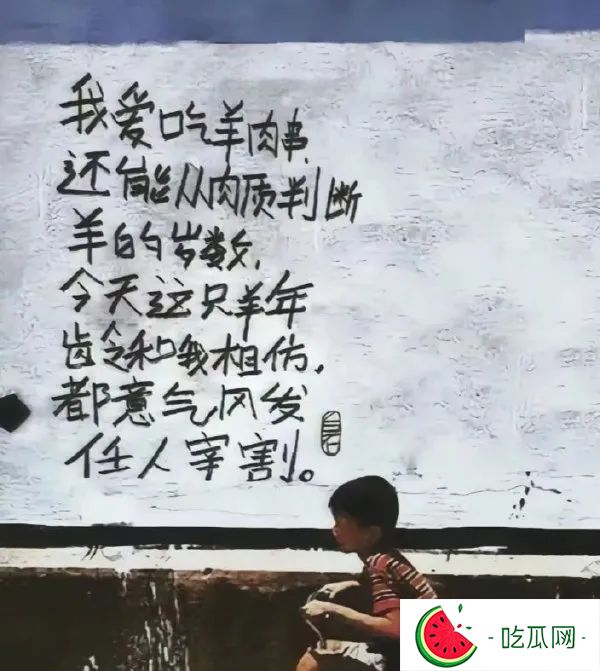 我爱吃羊肉串,
还能从肉质判断
羊的岁数,
今天这只羊年
齿令和哦相仿,
都意气风发
任人宰割。
·吃瓜网·